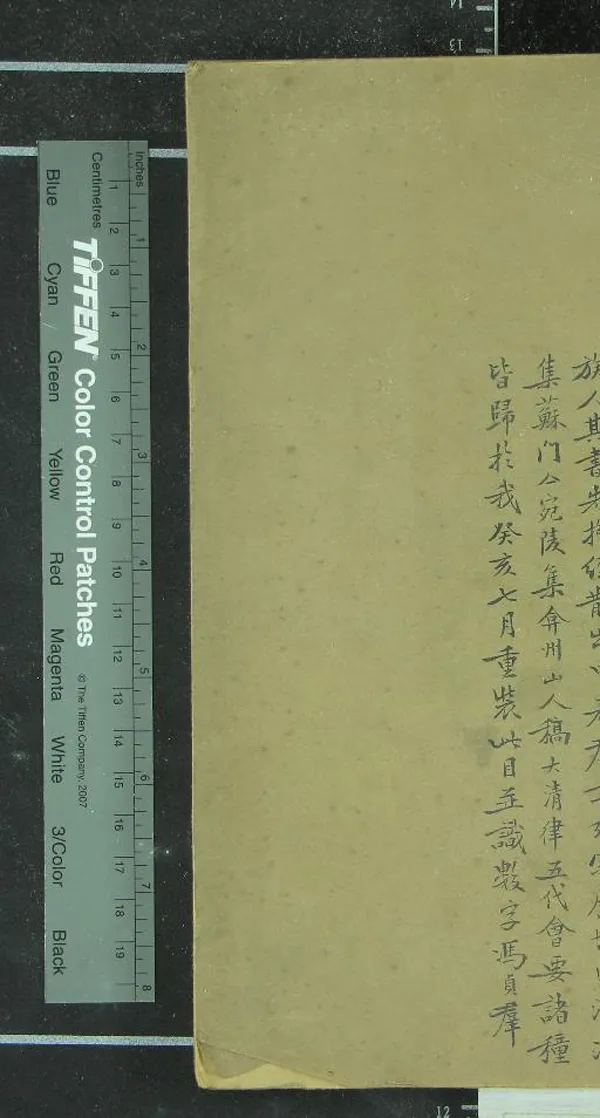 族人其書先
集蘇門宛陵集弇州山人稿大清律五代會要諸種
皆歸於我癸亥七月重裝此目並識數字馮貞羣
Inches
1 2 3 4 5 6 7 8
Centimetres
1 2 3 4 5 6 7 8 9 10 11 12 13 14 15 16 17 18 19
TIFFEN® Color Control Patches
© The Tiffen Company, 2007
Blue Cyan Green Yellow Red Magenta White 3/Color Black
14
13
12